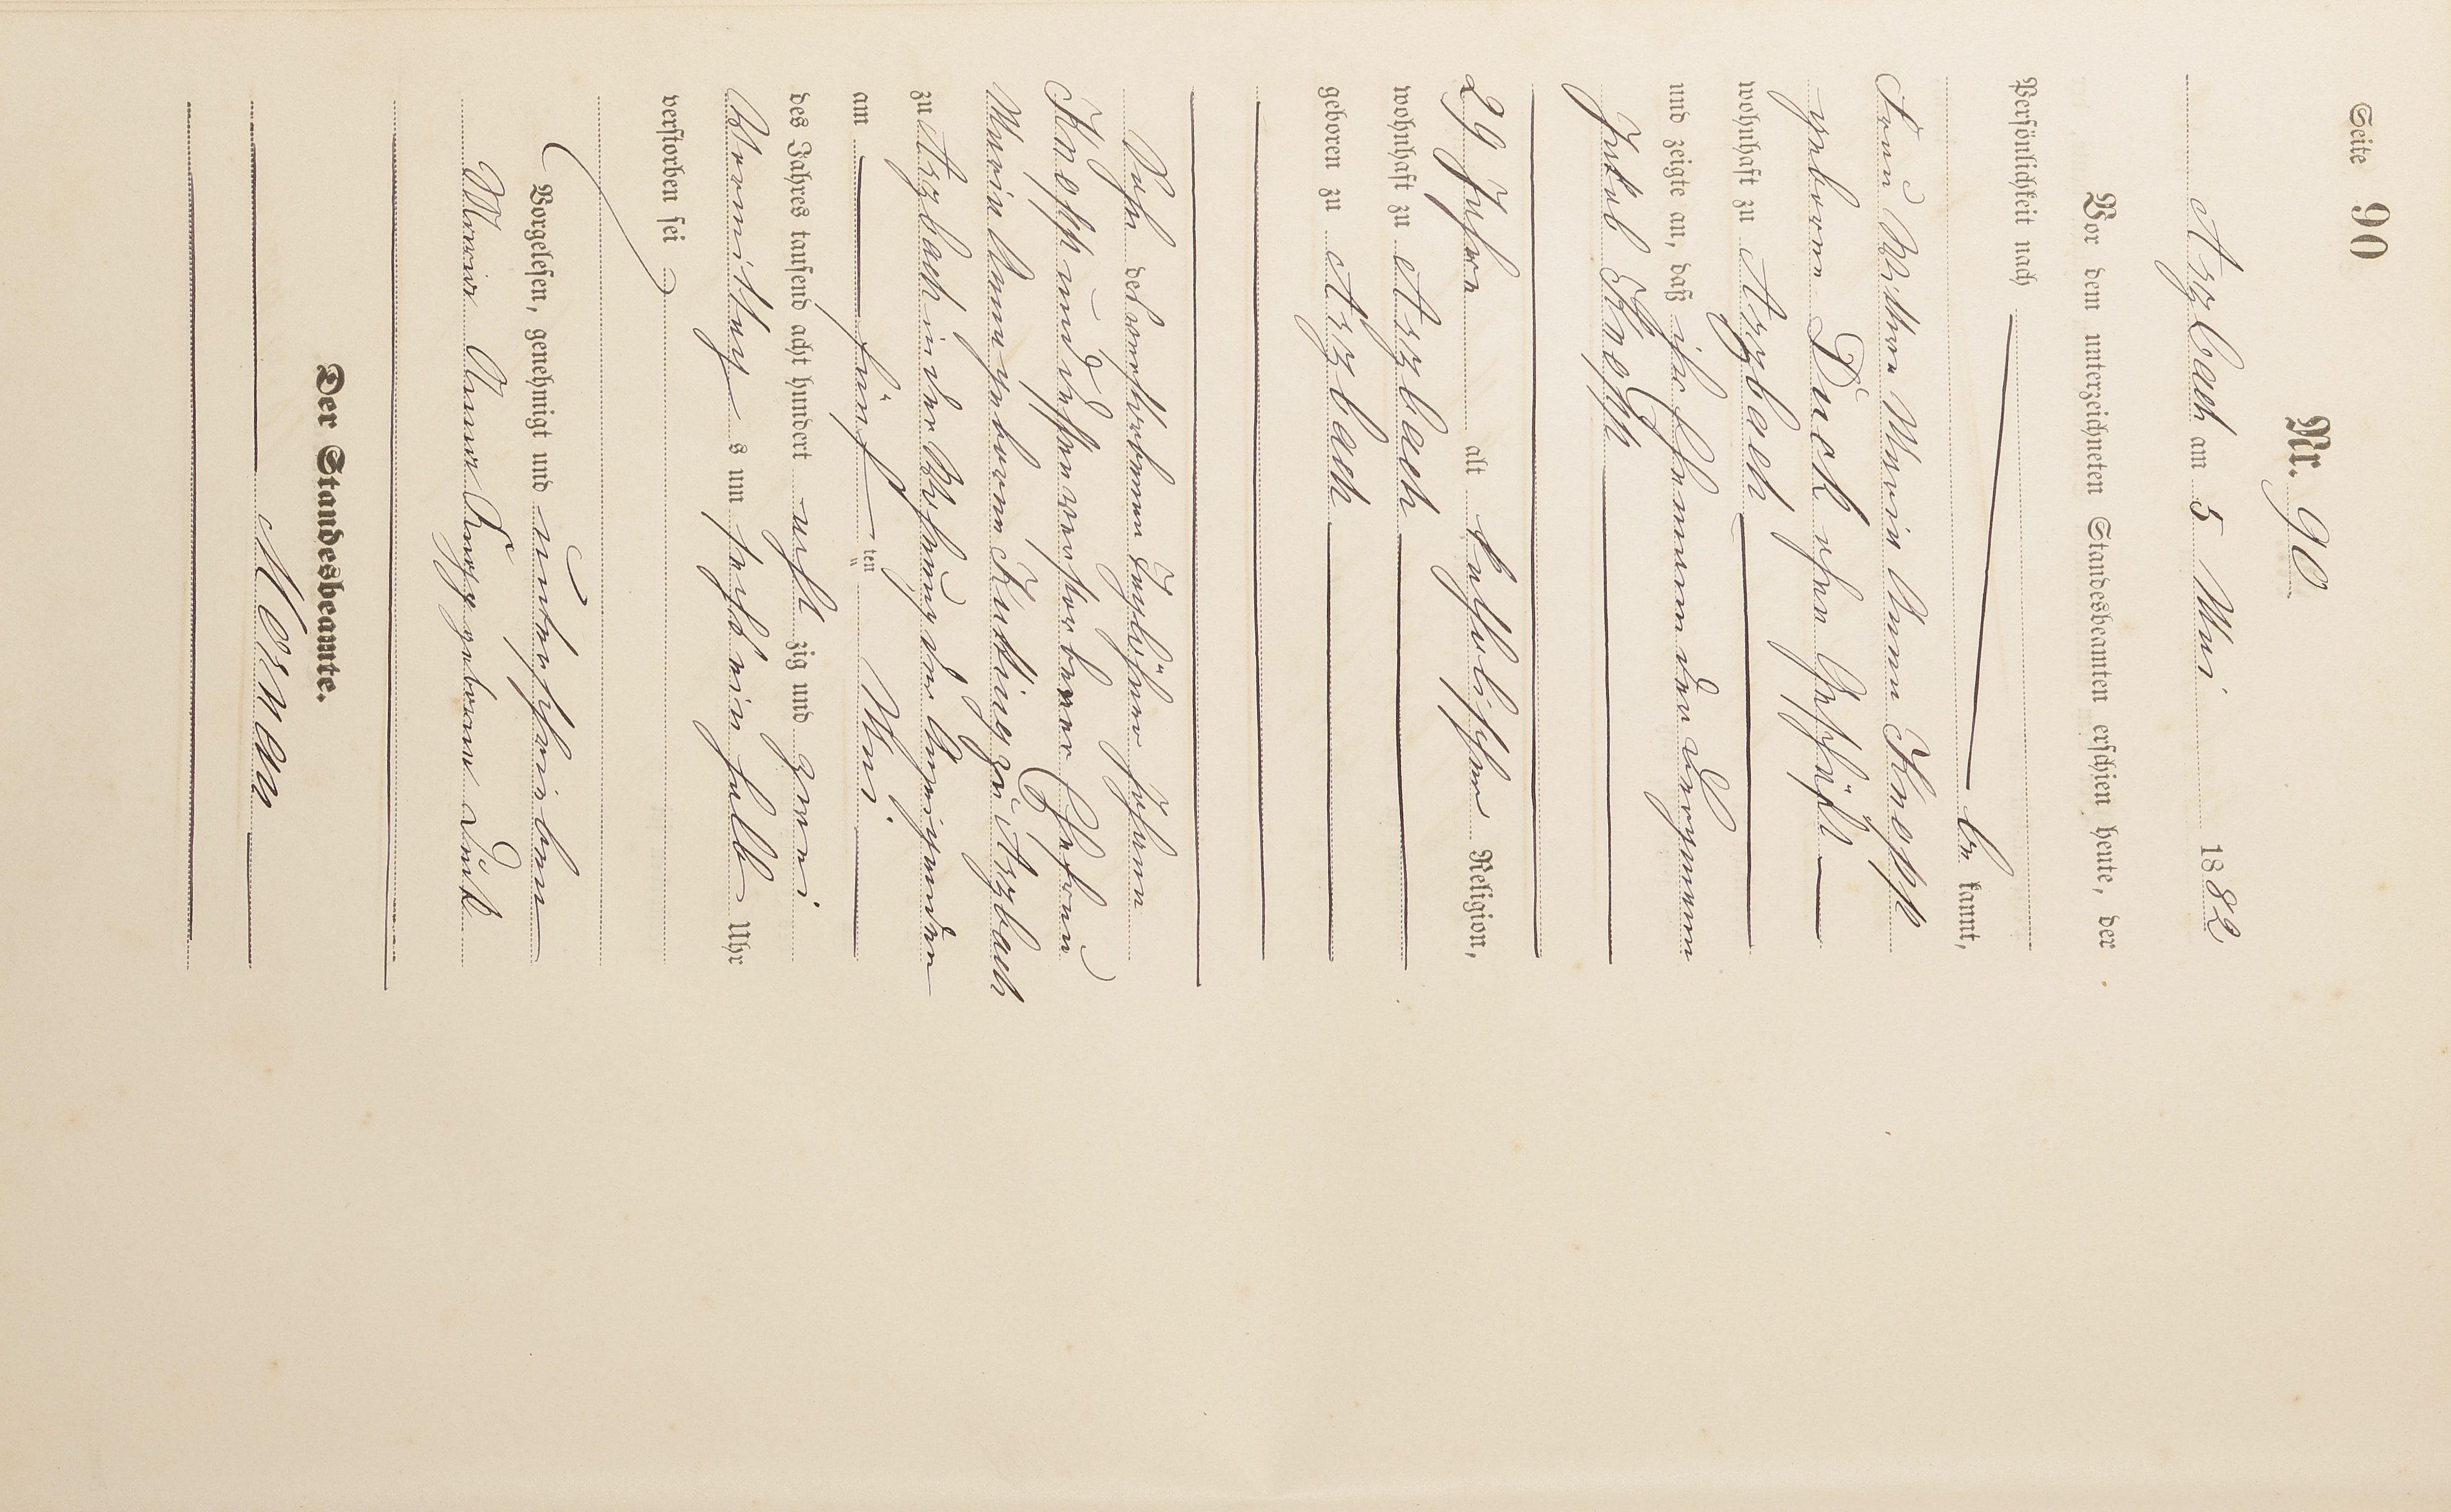 Seite 90
Nr. 90
Arzbach am 5 Mai 1882
Vor dem unterzeichneten Standesbeamten erschien heute, der
Persönlichkeit nach
be kannt,
Frau Wittwe Maria Anna Knopp
geborne Duck ohne Geschäft
wohnhaft zu Arzbach
und zeigte an, daß ihr Ehemann der Bergmann
Jakob Knopp
29 Jahre alt katholischer Religion,
wohnhaft zu Arzbach
geboren zu Arzbach
Sohn des verstorbenen Taglöhner Johann
Knopp und dessen verstorbener Ehefrau
Maria Anna geborne Kutting zu Arzbach
zu Arzbach in der Wohnung der Anzeigenden
am fünf ten Mai
des Jahres tausend acht hundert acht zig und zwei
Vormittag s um sechs ein halb Uhr
verstorben sei
Vorgelesen, genehmigt und unterschrieben
Maria Anna Knopp geborene Duck
Der Standesbeamte.